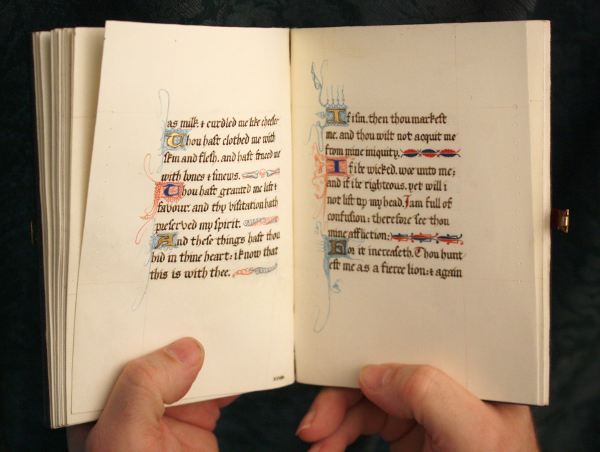 as milk & curdled me like cheese?
Thou hast clothed me with
skin and flesh, and hast fenced me
with bones & sinews.
Thou hast granted me life &
favour, and thy visitation hath
preserved my spirit.
And these things hast thou
hid in thine heart: i know that
this is with thee.
If i sin, then thou markest
me, and thou wilt not acquit me
from mine iniquity.
If i be wicked, woe unto me;
and if i be righteous, yet will i
not lift up my head. I am full of
confusion; therefore see thou
mine affliction;
For it increaseth. Thou hunt
est me as a fierce lion: & again